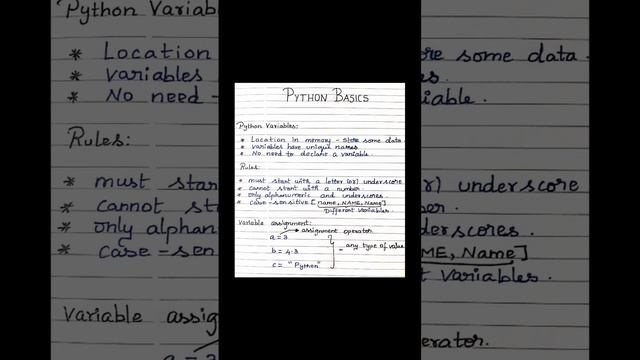 PYTHON BASICS
Python Variables:
* Location in memory - store some data
* variables have unique names
* No need to declare a variable.
Rules:
* must start with a letter (or) underscore
* cannot start with a number
* only alphanumeric and underscores
* case-sensitive [name, NAME, Name]
Different variables.
Variable assignment:
assignment operator
a = 3
b = 4.3
= any type of value
c = "Python"